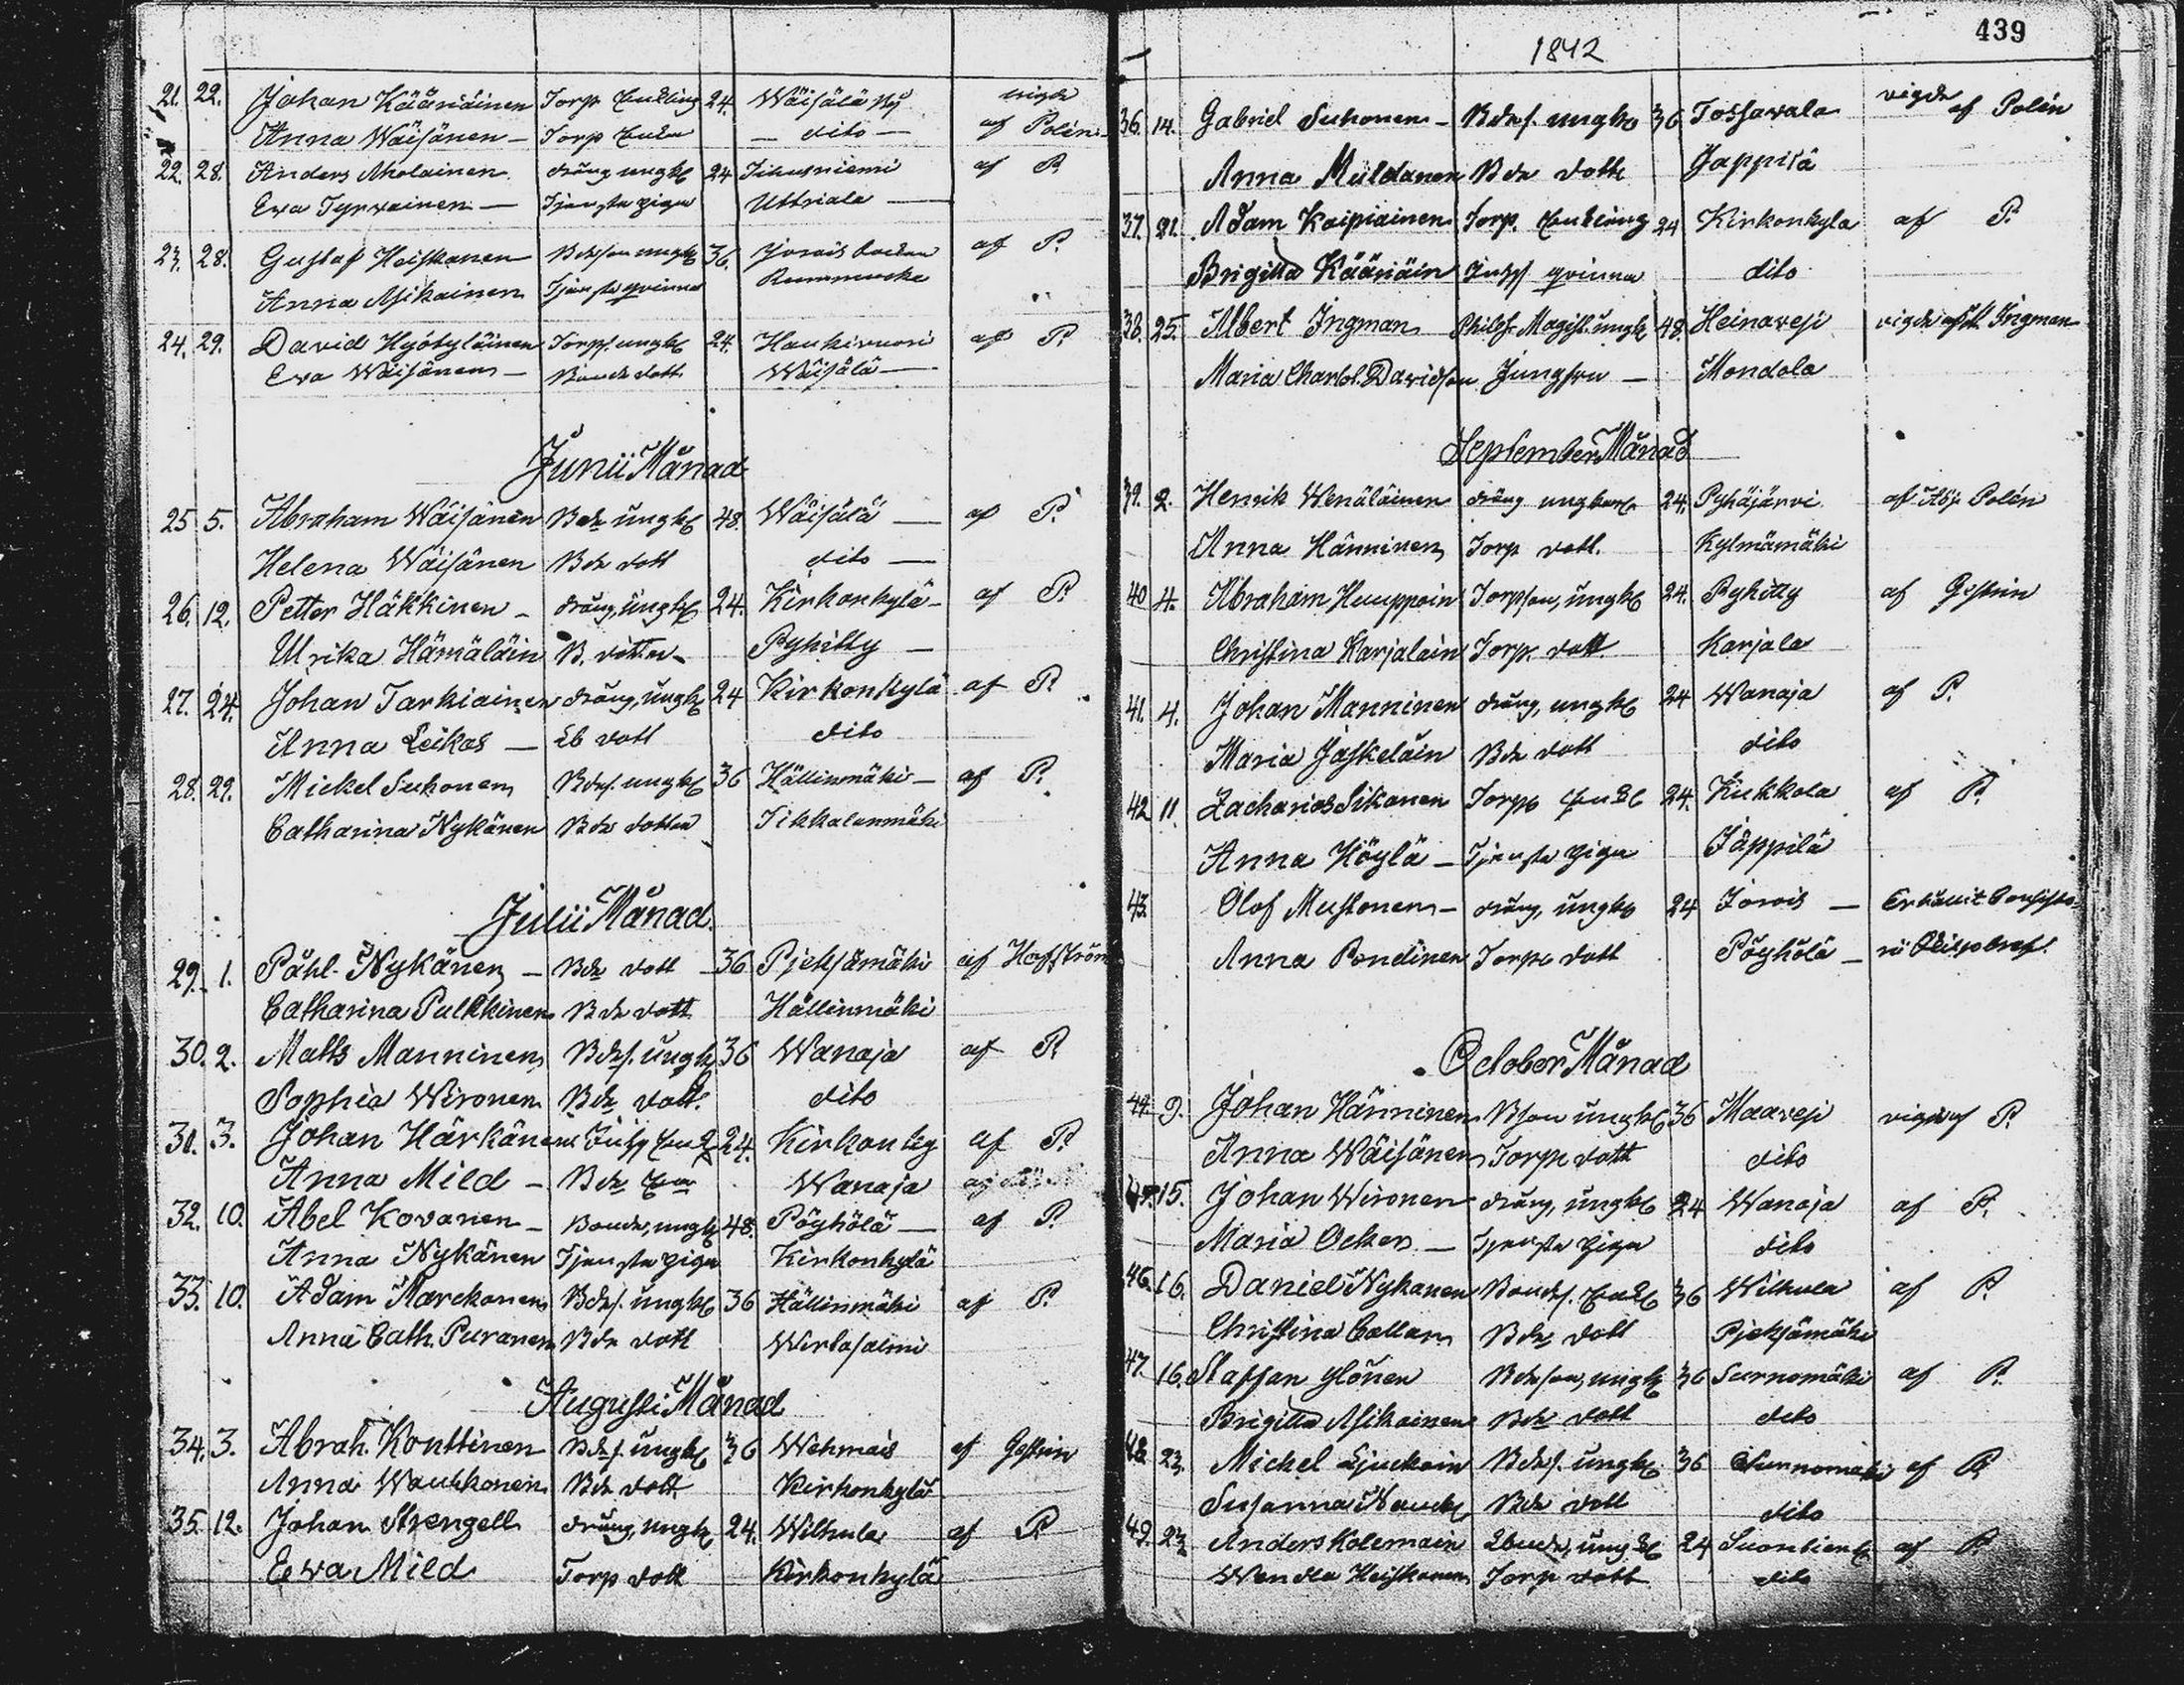 21. 22. Johan Kääriäinen Torp Enkling 24. Wäisälä by vigde
Anna Wäisänen – Torp Enka – dito – af Polén
22. 28. Anders Aholainen dräng ungk 24 Tihusniemi af P.
Ewa Tyrwainen – Tjenste piga Uttriala –
23. 28. Gustaf Heiskanen Bdeson ungk 36. Jorois af P.
Anna Asikainen Tjenste qvinna
24. 29. David Hyötyläinen Torps. ungk 24. Haukivuori af P.
Ewa Wäisänen – Bonde dott Wäisälä –
Junii Månad
25 5. Abraham Wäisänen Bde ungk 48. Wäisälä – af P.
Helena Wäisänen Bde dott dito –
26. 12. Petter Häkkinen – dräng, ungk 24. Kirkonkylä – af P.
Ulrika Hämäläin B. Pyhitty –
27. 24. Johan Tarkiainen dräng, ungk 24 Kirkonkylä af P.
Anna Leikas – dott dito
28. 29. Mickel Suhonen Bdes. ungk 36 Hällinmäki – af P.
Catharina Nykänen Bde dotter Tikkalanmäki
Julii Månad
29. 1. Påhl Nykänen – Bde dott 36 Pjeksämäki af Hoffström
Catharina Pulkkinen Bde dott Hällinmäki
30. 2. Matts Manninen Bdes. ungk 36 Wanaja af P.
Sophia Wironen Bde dott. dito
31. 3. Johan Härkänen Enkl 24. Kirkonky af P.
Anna Mild – Bde Enka Wanaja
32. 10. Abel Kovanen – Bonde, ungk 48. Pöyhölä – af P.
Anna Nykänen Tjenste piga Kirkonkylä
33. 10. Adam Marckonen Bdes. ungk 36 Hällinmäki af P.
Anna Cath. Puranen Bde dott Wirtasalmi
Augusti Månad
34. 3. Abrah. Konttinen Bdes. ungk 36 Wehmais af Gestrin
Anna Wauhkonen Bde dott Kirkonkylä
35. 12. Johan Strengell dräng, ungk 24. Wilhula af P.
Ewa Mild Torp dott Kirkonkylä
439
1842
36. 14. Gabriel Suhonen – Bdes. ungk 36 Tossavala vigde af Polén
Anna Bde dott Jäppilä
37. 21. Adam Kaipiainen Torp. Enkling 24 Kirkonkyla af P.
Brigitta Kääriäin qvinna dito
38. 25. Albert Ingman Philos. Magist. ungk 48. Heinavesi vigde af Ingman
Maria Charlot. Davidson Jungfru – Mondola
September Månad
39. 2. Henrik Wenäläinen dräng ungkarl 24. Pyhäjärvi af Adj. Polén
Anna Hänninen Torp dott. Kylmämäki
40 4. Abraham Torpson, ungk 24. Pyhitty af Gestrin
Christina Karjalain Torp. dott Karjala
41. 4. Johan Manninen dräng, ungk 24 Wanaja af P.
Maria Jäskeläin Bde dott dito
42 11. Zacharias Sikanen Torp Enkl 24. Kukkola af P.
Anna Höylä – Tjenste piga Jäppilä
43. Olof Mustonen – dräng, ungk 24 Jorois –
Anna Pondinen Torp dott Pöyhölä –
October Månad
44. 9. Johan Hänninen Bson ungk 36 Maavesi vigde af P.
Anna Wäisänen Torp dott dito
45. 15. Johan Wironen dräng, ungk 24 Wanaja af P.
Maria Ocker – Tjenste piga dito
46. 16. Daniel Nykanen Bondes. Enkl 36 Wilhula af P.
Christina Collan Bde dott Pjeksämäki
47. 16. Staffan Ylönen Bdeson, ungk 36 Surnomäki af P.
Brigitta Asikainen Bde dott dito
48. 23. Michel Bdes. ungk 36 Surnomäki af P.
Susanna Bde dott dito
49. 23 Anders Kolemain ungk 24 af P.
Wendla Heiskanen Torp dott dito